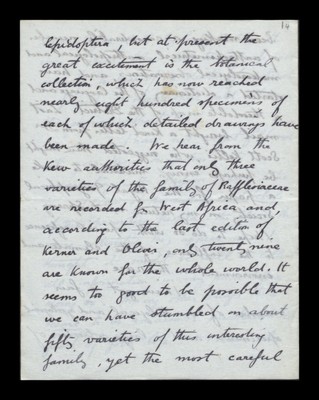 14
Lepidoptera, but at present the
great excitement is the botanical
collection, which has now reached
nearly eight hundred specimens of
each of which detailed drawings have
been made. We hear from the
Kew authorities that only three
varieties of the family of Rafflesiaceae
are recorded fr West Africa and,
according to the last edition of
Kerner and Oliver, only twenty nine
are known for the whole world. It
seems too good to be possible that
we can have stumbled on about
fifty varieties of this interesting
family, yet the most careful